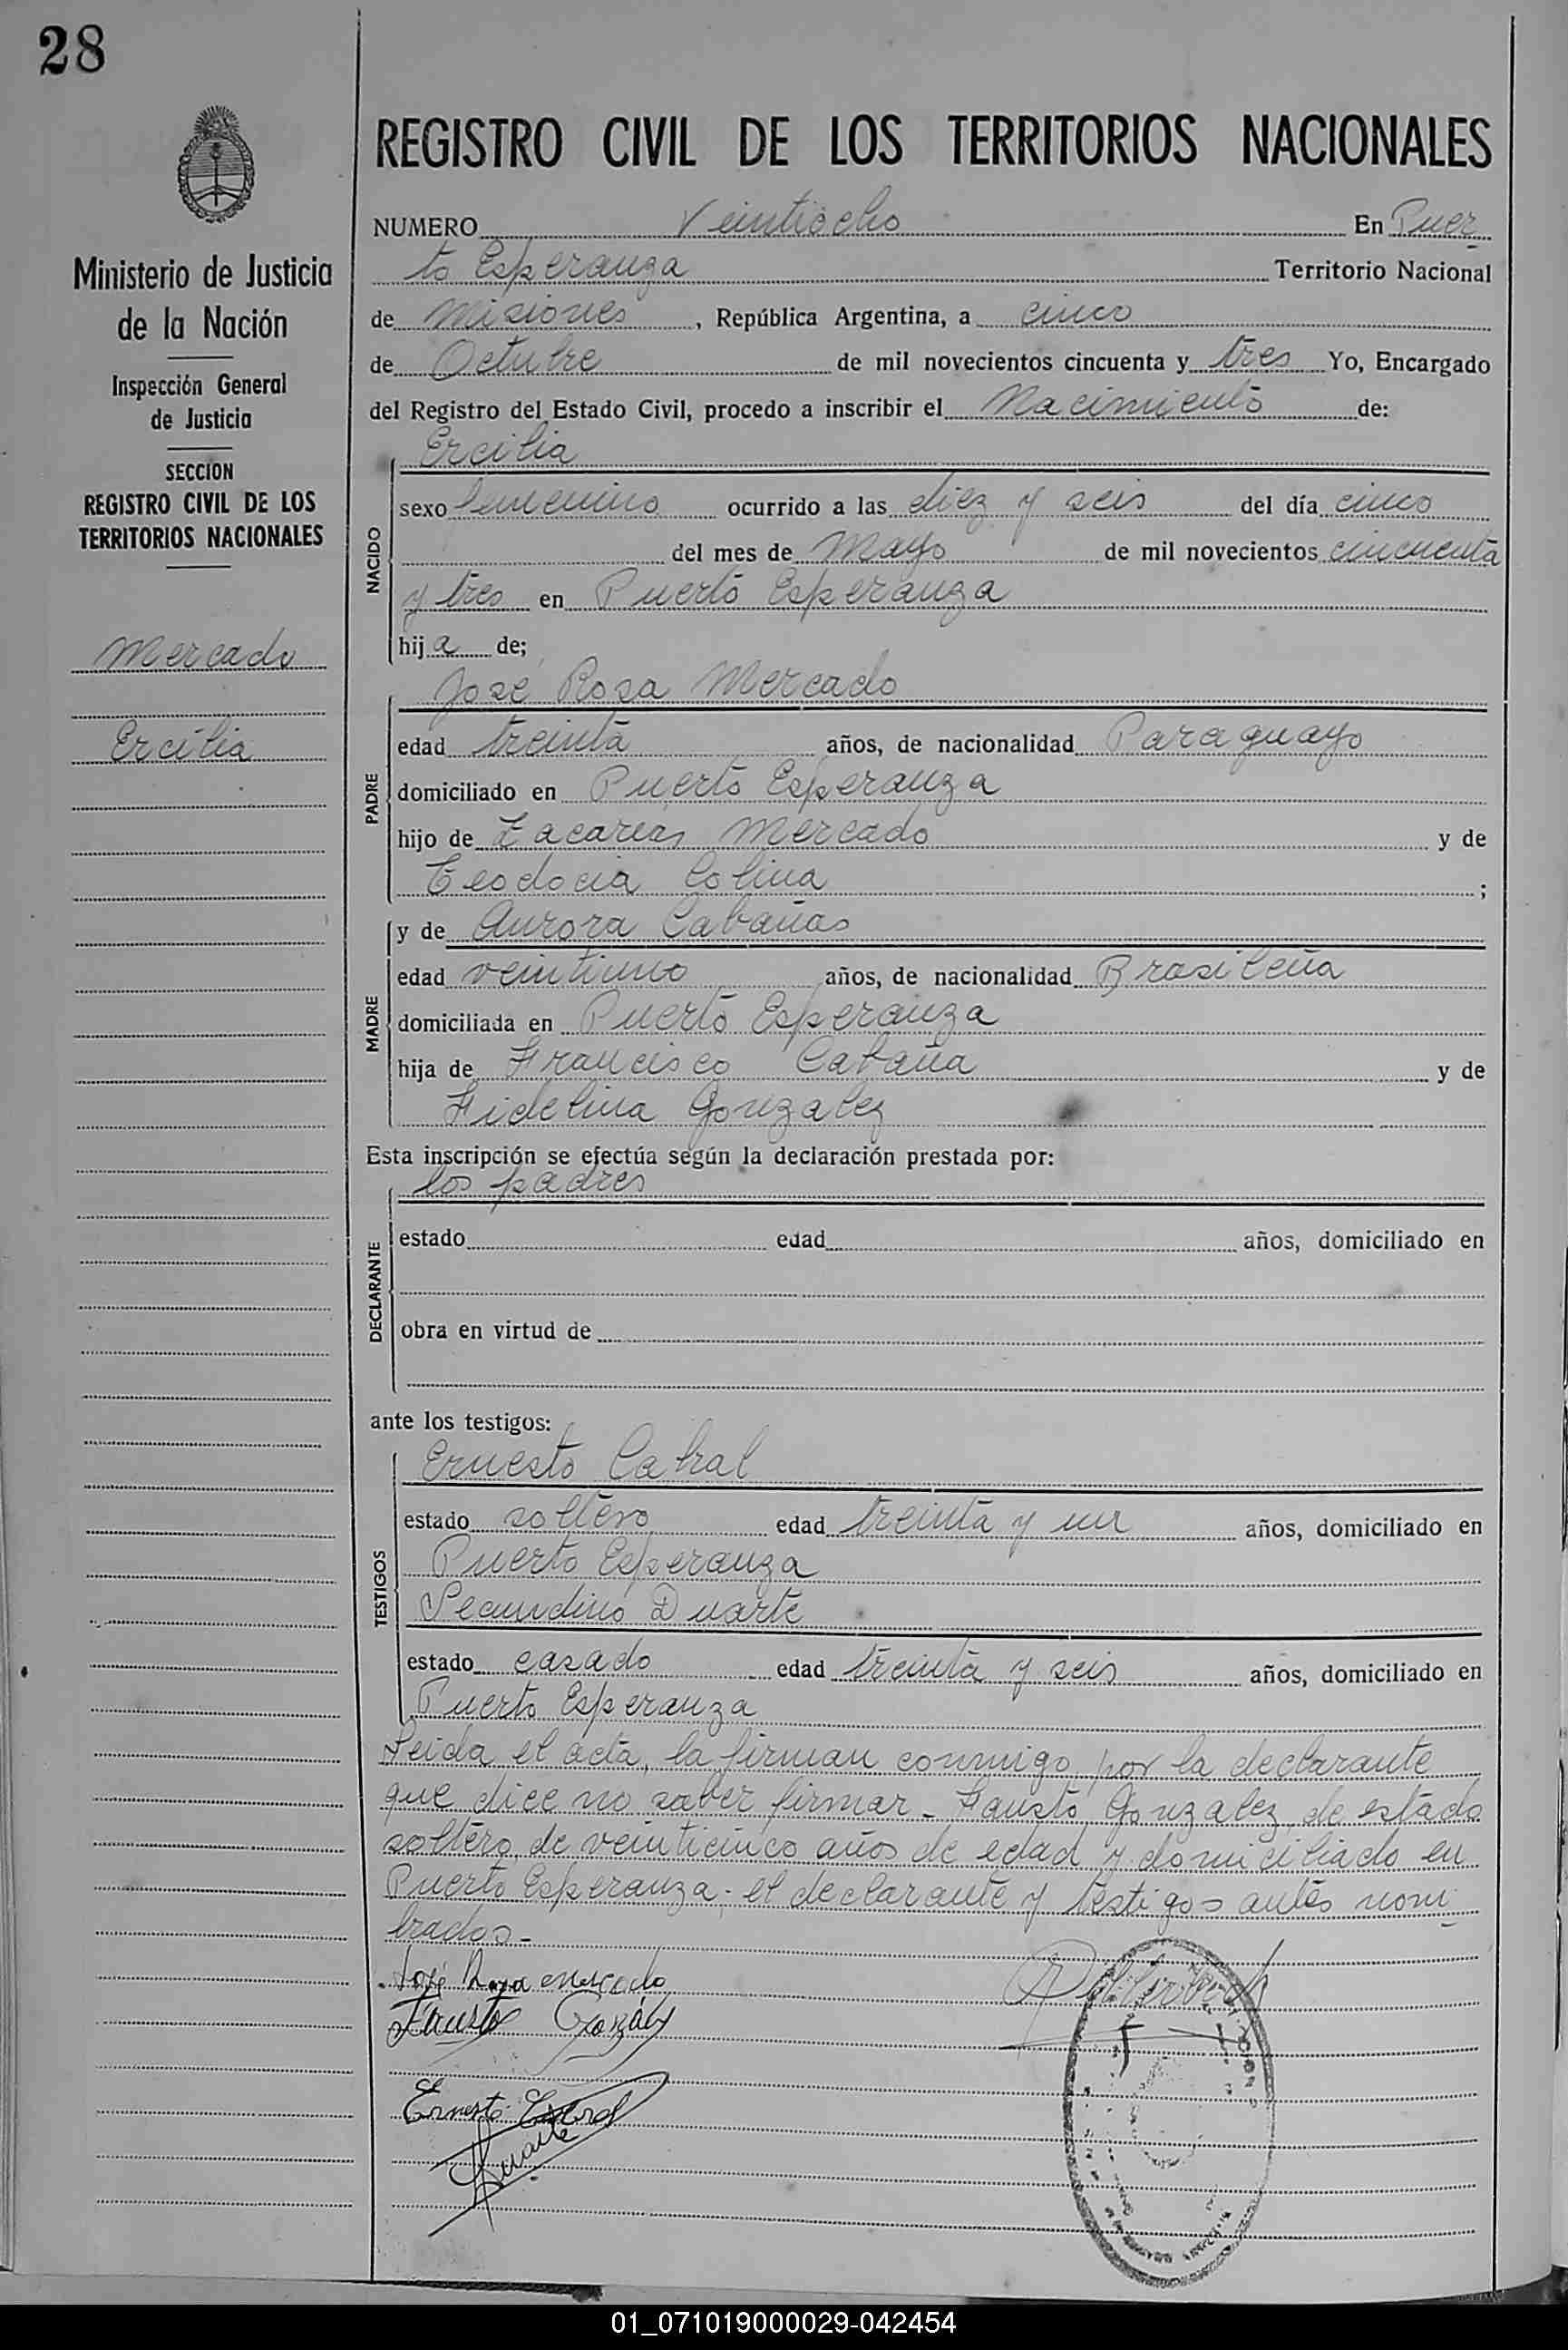 28
Ministerio de Justicia
de la Nación
Inspección General
de Justicia
SECCION
REGISTRO CIVIL DE LOS
TERRITORIOS NACIONALES
Mercado
Ercilia
REGISTRO CIVIL DE LOS TERRITORIOS NACIONALES
NUMERO Veintiocho En Puer
to Esperanza Territorio Nacional
de Misiones, República Argentina, a cinco
de Octubre de mil novecientos cincuenta y tres Yo, Encargado
del Registro del Estado Civil, procedo a inscribir el Nacimiento de:
NACIDO
Ercilia
sexo femenino ocurrido a las diez y seis del día cinco
del mes de Mayo de mil novecientos cincuenta
y tres en Puerto Esperanza
hija de;
PADRE
José Rosa Mercado
edad treinta años, de nacionalidad Paraguayo
domiciliado en Puerto Esperanza
hijo de Zacarias Mercado y de
Teodocia Colina ;
MADRE
y de Aurora Cabañas
edad veintiuno años, de nacionalidad Brasileña
domiciliada en Puerto Esperanza
hija de Francisco Cabaña y de
Fidelina Gonzalez
Esta inscripción se efectúa según la declaración prestada por:
DECLARANTE
los padres
estado edad años, domiciliado en
obra en virtud de
ante los testigos:
TESTIGOS
Ernesto Cabral
estado soltero edad treinta y un años, domiciliado en
Puerto Esperanza
Secundino Duarte
estado casado edad treinta y seis años, domiciliado en
Puerto Esperanza
Leida el acta, la firman conmigo, por la declarante
que dice no saber firmar - Fausto Gonzalez, de estado
soltero, de veinticinco años de edad y domiciliado en
Puerto Esperanza; el declarante y testigos antes nom-
brados.-
José Rosa mercado
Fausto González
Ernesto Cabral
Duarte
01_071019000029-042454